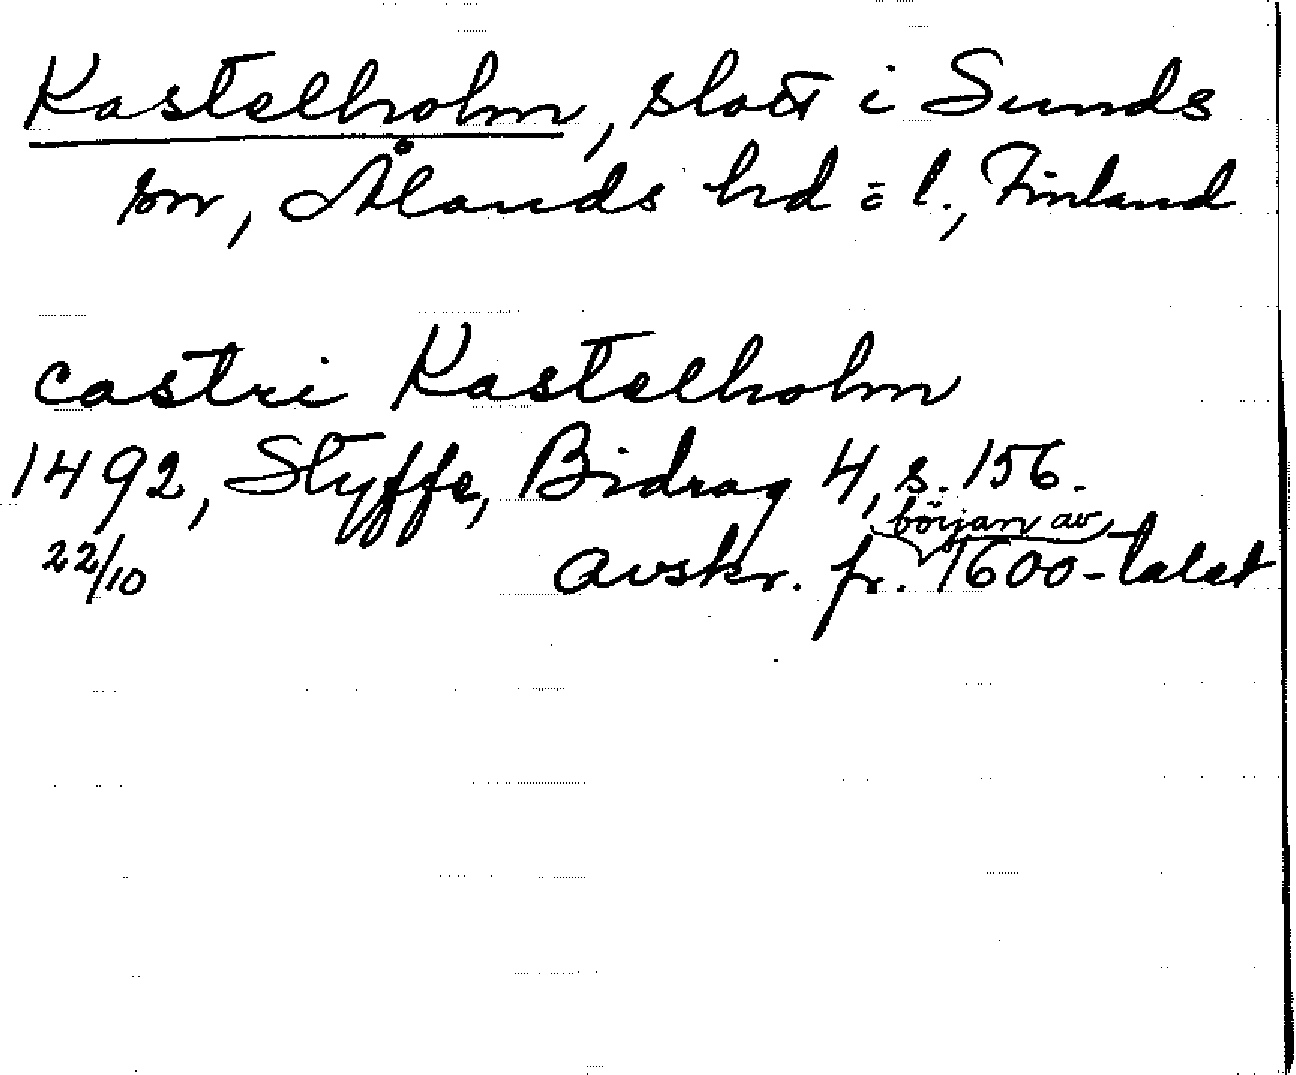 Kastelholm, slott i Sunds
sn, Ålands hd o. l., Finland
castri Kastelholm
1492, Styffe, Bidrag 4, s. 156.
början av
22/10 avskr. fr. 1600-talet